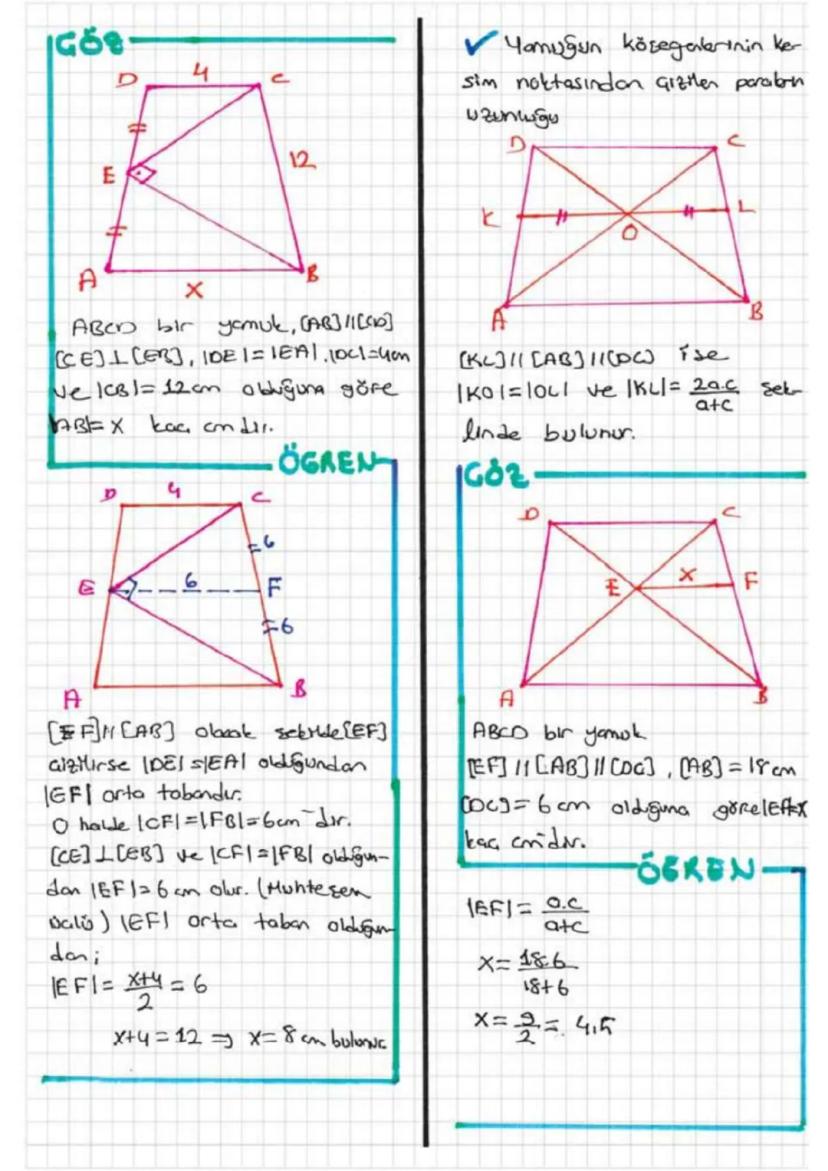 GÖZ
D 4 C
E 12
A X B
ABCD bir yamuk, [AB]//[CD]
[CE]⊥[EB], |DE|=|EA|. |DC|=4cm
ve |CB|= 12cm olduğuna göre
|AB|= X kaç cm dir.
ÖĞREN
D 4 C
6
E 6 F
6
A B
[EF]//[AB] olacak şekilde [EF]
çizilirse |DE|=|EA| olduğundan
|EF| orta tabandır.
O halde |CF|=|FB|=6cm dır.
[CE]⊥[EB] ve |CF|=|FB| olduğun-
dan |EF|=6 cm olur. (Muhteşem
üçlü) |EF| orta taban olduğun-
dan;
|EF|= x+4/2 = 6
x+4=12 ⇒ x=8 cm bulunur
✓ Yamuğun köşegenlerinin ke-
sim noktasından çizilen paralelin
uzunluğu
D C
K O L
A B
[KL]//[AB]//[DC] ise
|KO|=|OL| ve |KL|= 2a.c/a+c şek-
linde bulunur.
GÖZ
D C
E X F
A B
ABCD bir yamuk
[EF]//[AB]//[DC], [AB]=18cm
[DC]=6cm olduğuna göre |EF|=X
kaç cm'dir.
ÖĞREN
|EF|= a.c/a+c
X= 18.6/18+6
X= 9/2 = 4,5